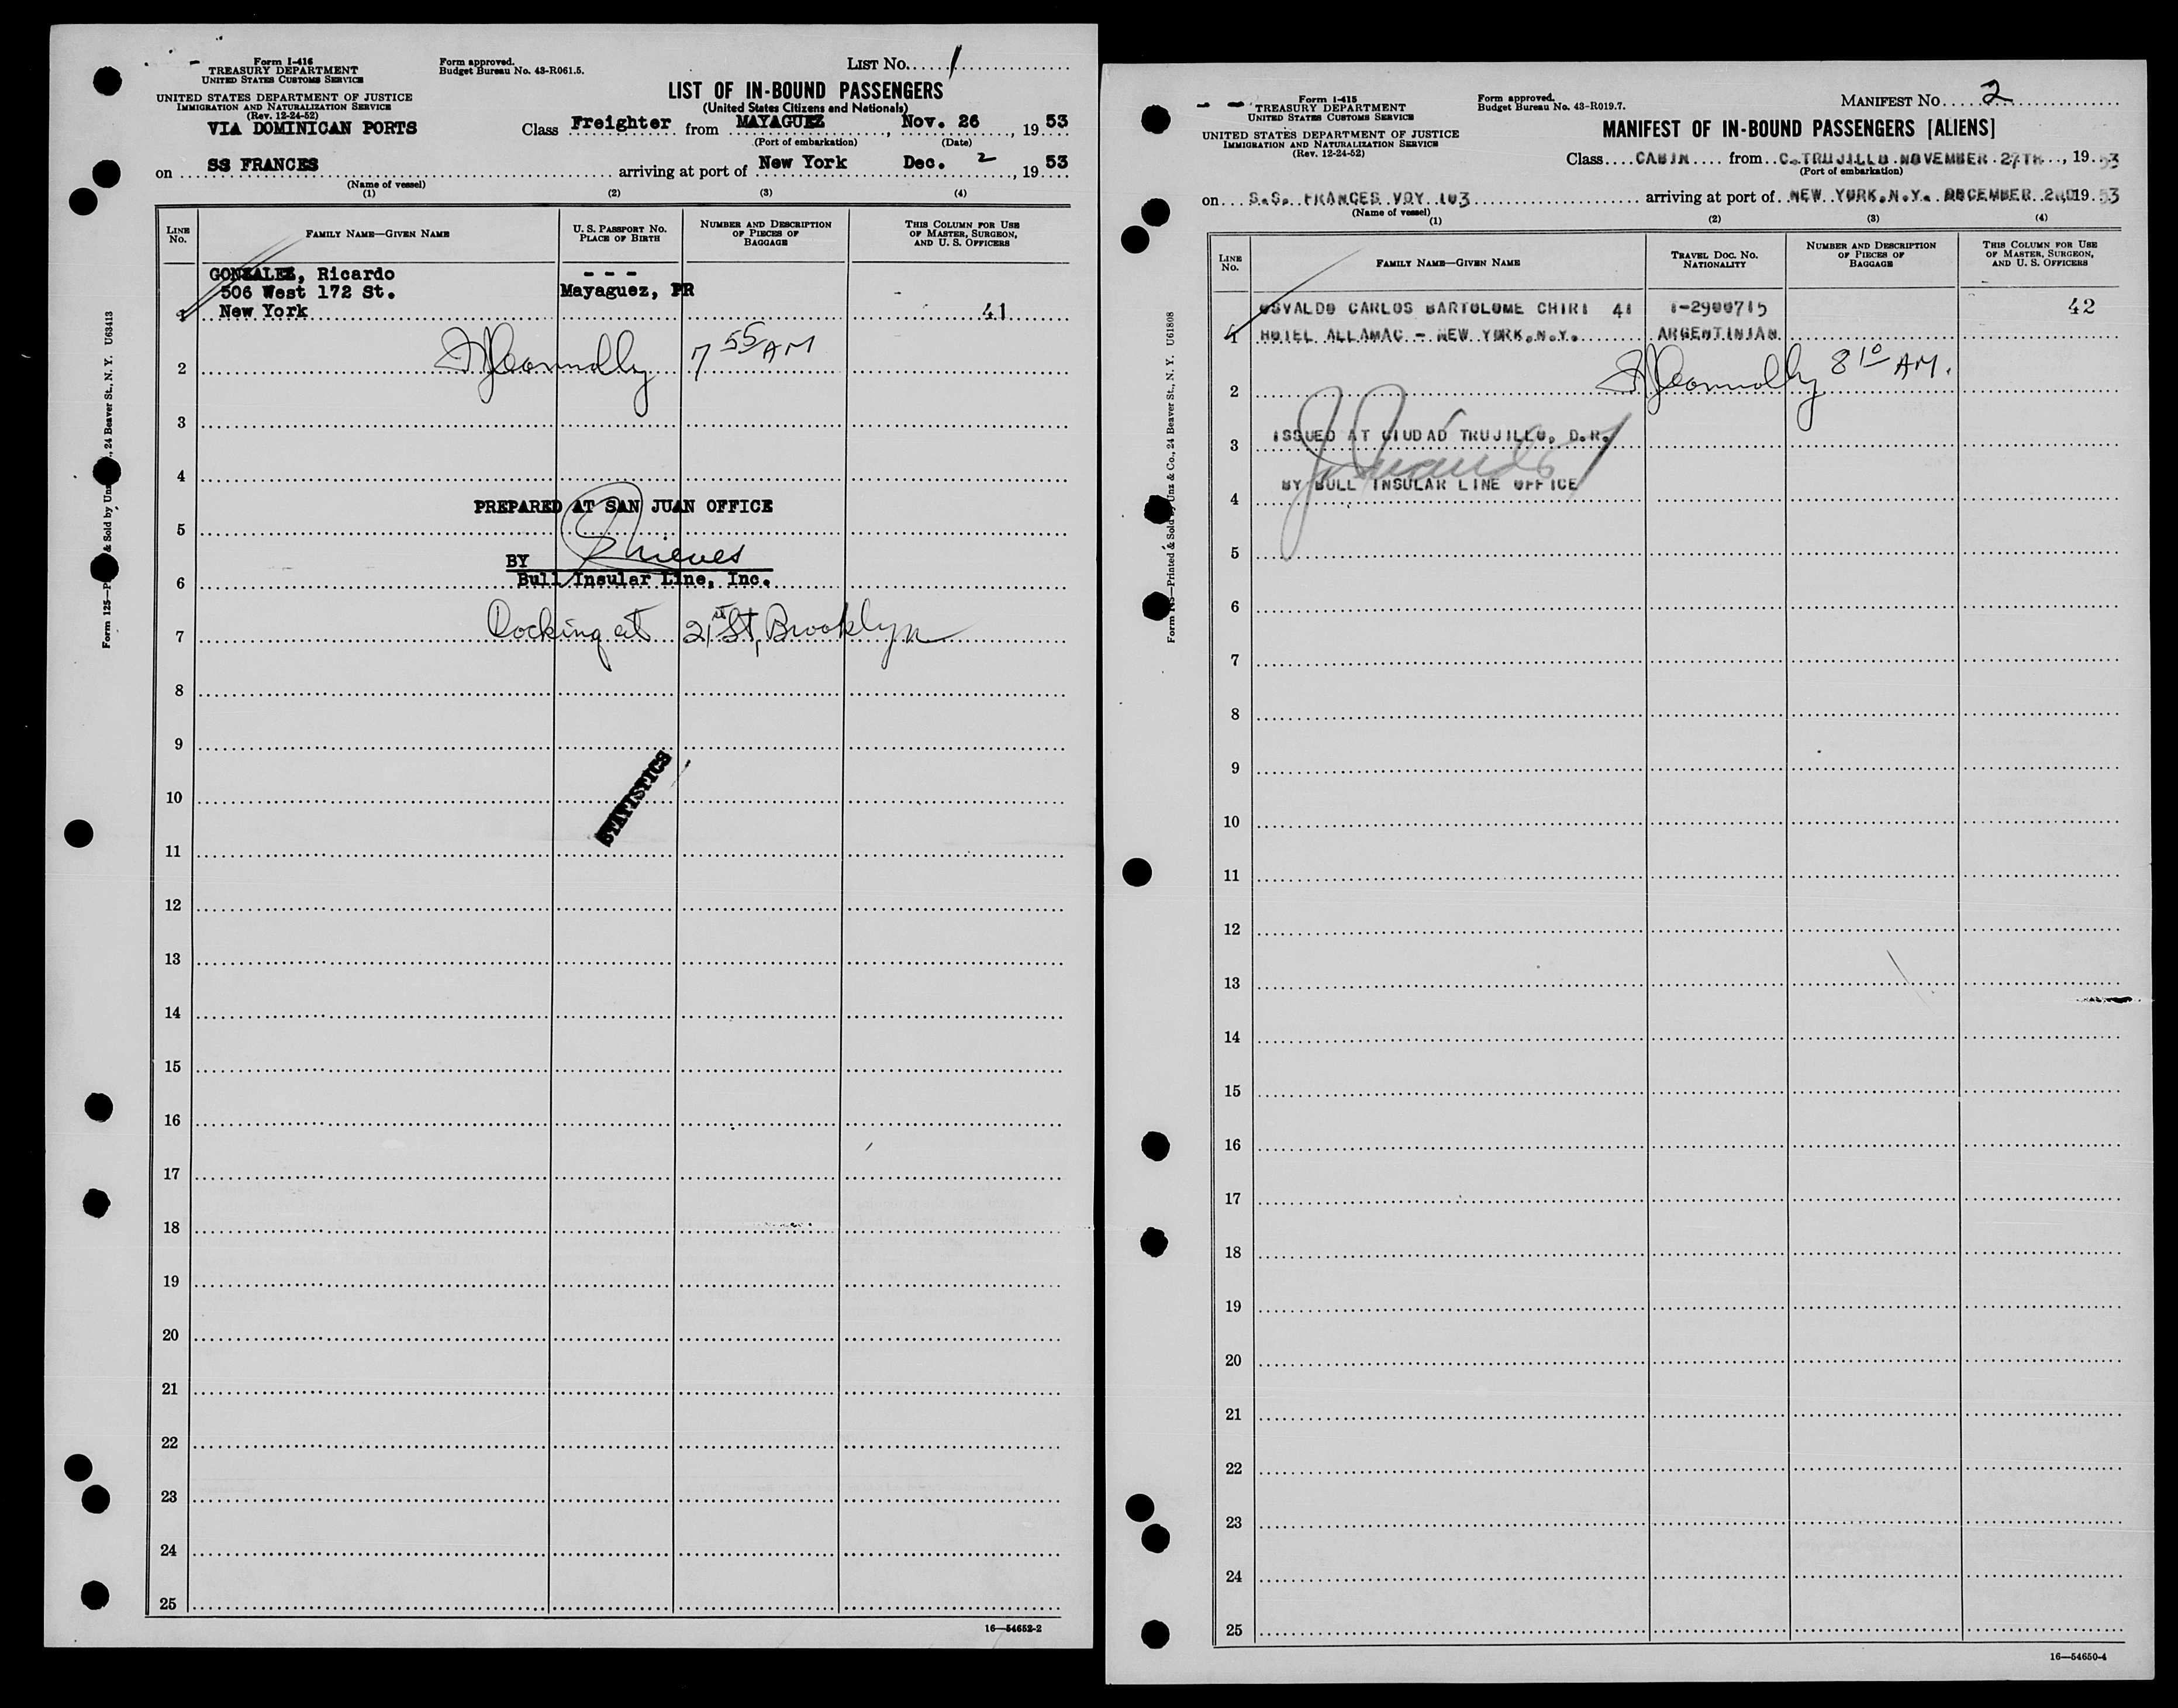 Form I-416
TREASURY DEPARTMENT
UNITED STATES CUSTOMS SERVICE
UNITED STATES DEPARTMENT OF JUSTICE
IMMIGRATION AND NATURALIZATION SERVICE
(Rev. 12-24-52)
VIA DOMINICAN PORTS
Form approved.
Budget Bureau No. 43-R061.5.
LIST NO. 1
LIST OF IN-BOUND PASSENGERS
(United States Citizens and Nationals)
Class Freighter from MAYAGUEZ, Nov. 26, 1953
(Port of embarkation) (Date)
on SS FRANCES arriving at port of New York Dec. 2, 1953
(Name of vessel)
(1) (2) (3) (4)
LINE NO.
FAMILY NAME—GIVEN NAME
U. S. PASSPORT NO.
PLACE OF BIRTH
NUMBER AND DESCRIPTION OF PIECES OF BAGGAGE
THIS COLUMN FOR USE OF MASTER, SURGEON, AND U. S. OFFICERS
GONZALEZ, Ricardo - - -
506 West 172 St. Mayaguez, PR
1 New York 41
2 7 55 AM
3
4
PREPARED AT SAN JUAN OFFICE
5
BY Nieves
6 Bull Insular Line, Inc.
7 Docking at 21st St, Brooklyn
8
9
STATISTICS
10
11
12
13
14
15
16
17
18
19
20
21
22
23
24
25
16—54652-2
& Sold by Unz & Co., 24 Beaver St., N. Y. U63413
Form 125—P
Form I-415
TREASURY DEPARTMENT
UNITED STATES CUSTOMS SERVICE
UNITED STATES DEPARTMENT OF JUSTICE
IMMIGRATION AND NATURALIZATION SERVICE
(Rev. 12-24-52)
Form approved.
Budget Bureau No. 43-R019.7.
MANIFEST NO. 2
MANIFEST OF IN-BOUND PASSENGERS [ALIENS]
Class CABIN from C. TRUJILLO NOVEMBER 27TH, 1953
(Port of embarkation)
on S.S. FRANCES VOY 103 arriving at port of NEW YORK, N.Y. DECEMBER 2, 1953
(Name of vessel)
(1) (2) (3) (4)
LINE NO.
FAMILY NAME—GIVEN NAME
TRAVEL DOC. NO.
NATIONALITY
NUMBER AND DESCRIPTION OF PIECES OF BAGGAGE
THIS COLUMN FOR USE OF MASTER, SURGEON, AND U. S. OFFICERS
OSVALDO CARLOS BARTOLOME CHIRI 41 I-2900715 42
1 HOTEL ALLAMAC - NEW YORK, N.Y. ARGENTINIAN
2 8 10 AM.
3 ISSUED AT CIUDAD TRUJILLO, D.R.
4 BY BULL INSULAR LINE OFFICE
5
6
7
8
9
10
11
12
13
14
15
16
17
18
19
20
21
22
23
24
25
16—54650-4
Printed & Sold by Unz & Co., 24 Beaver St., N. Y. U61808